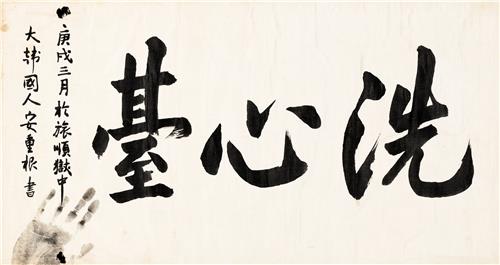 洗心臺
庚戌三月 於旅順獄中
大韓國人 安重根 書